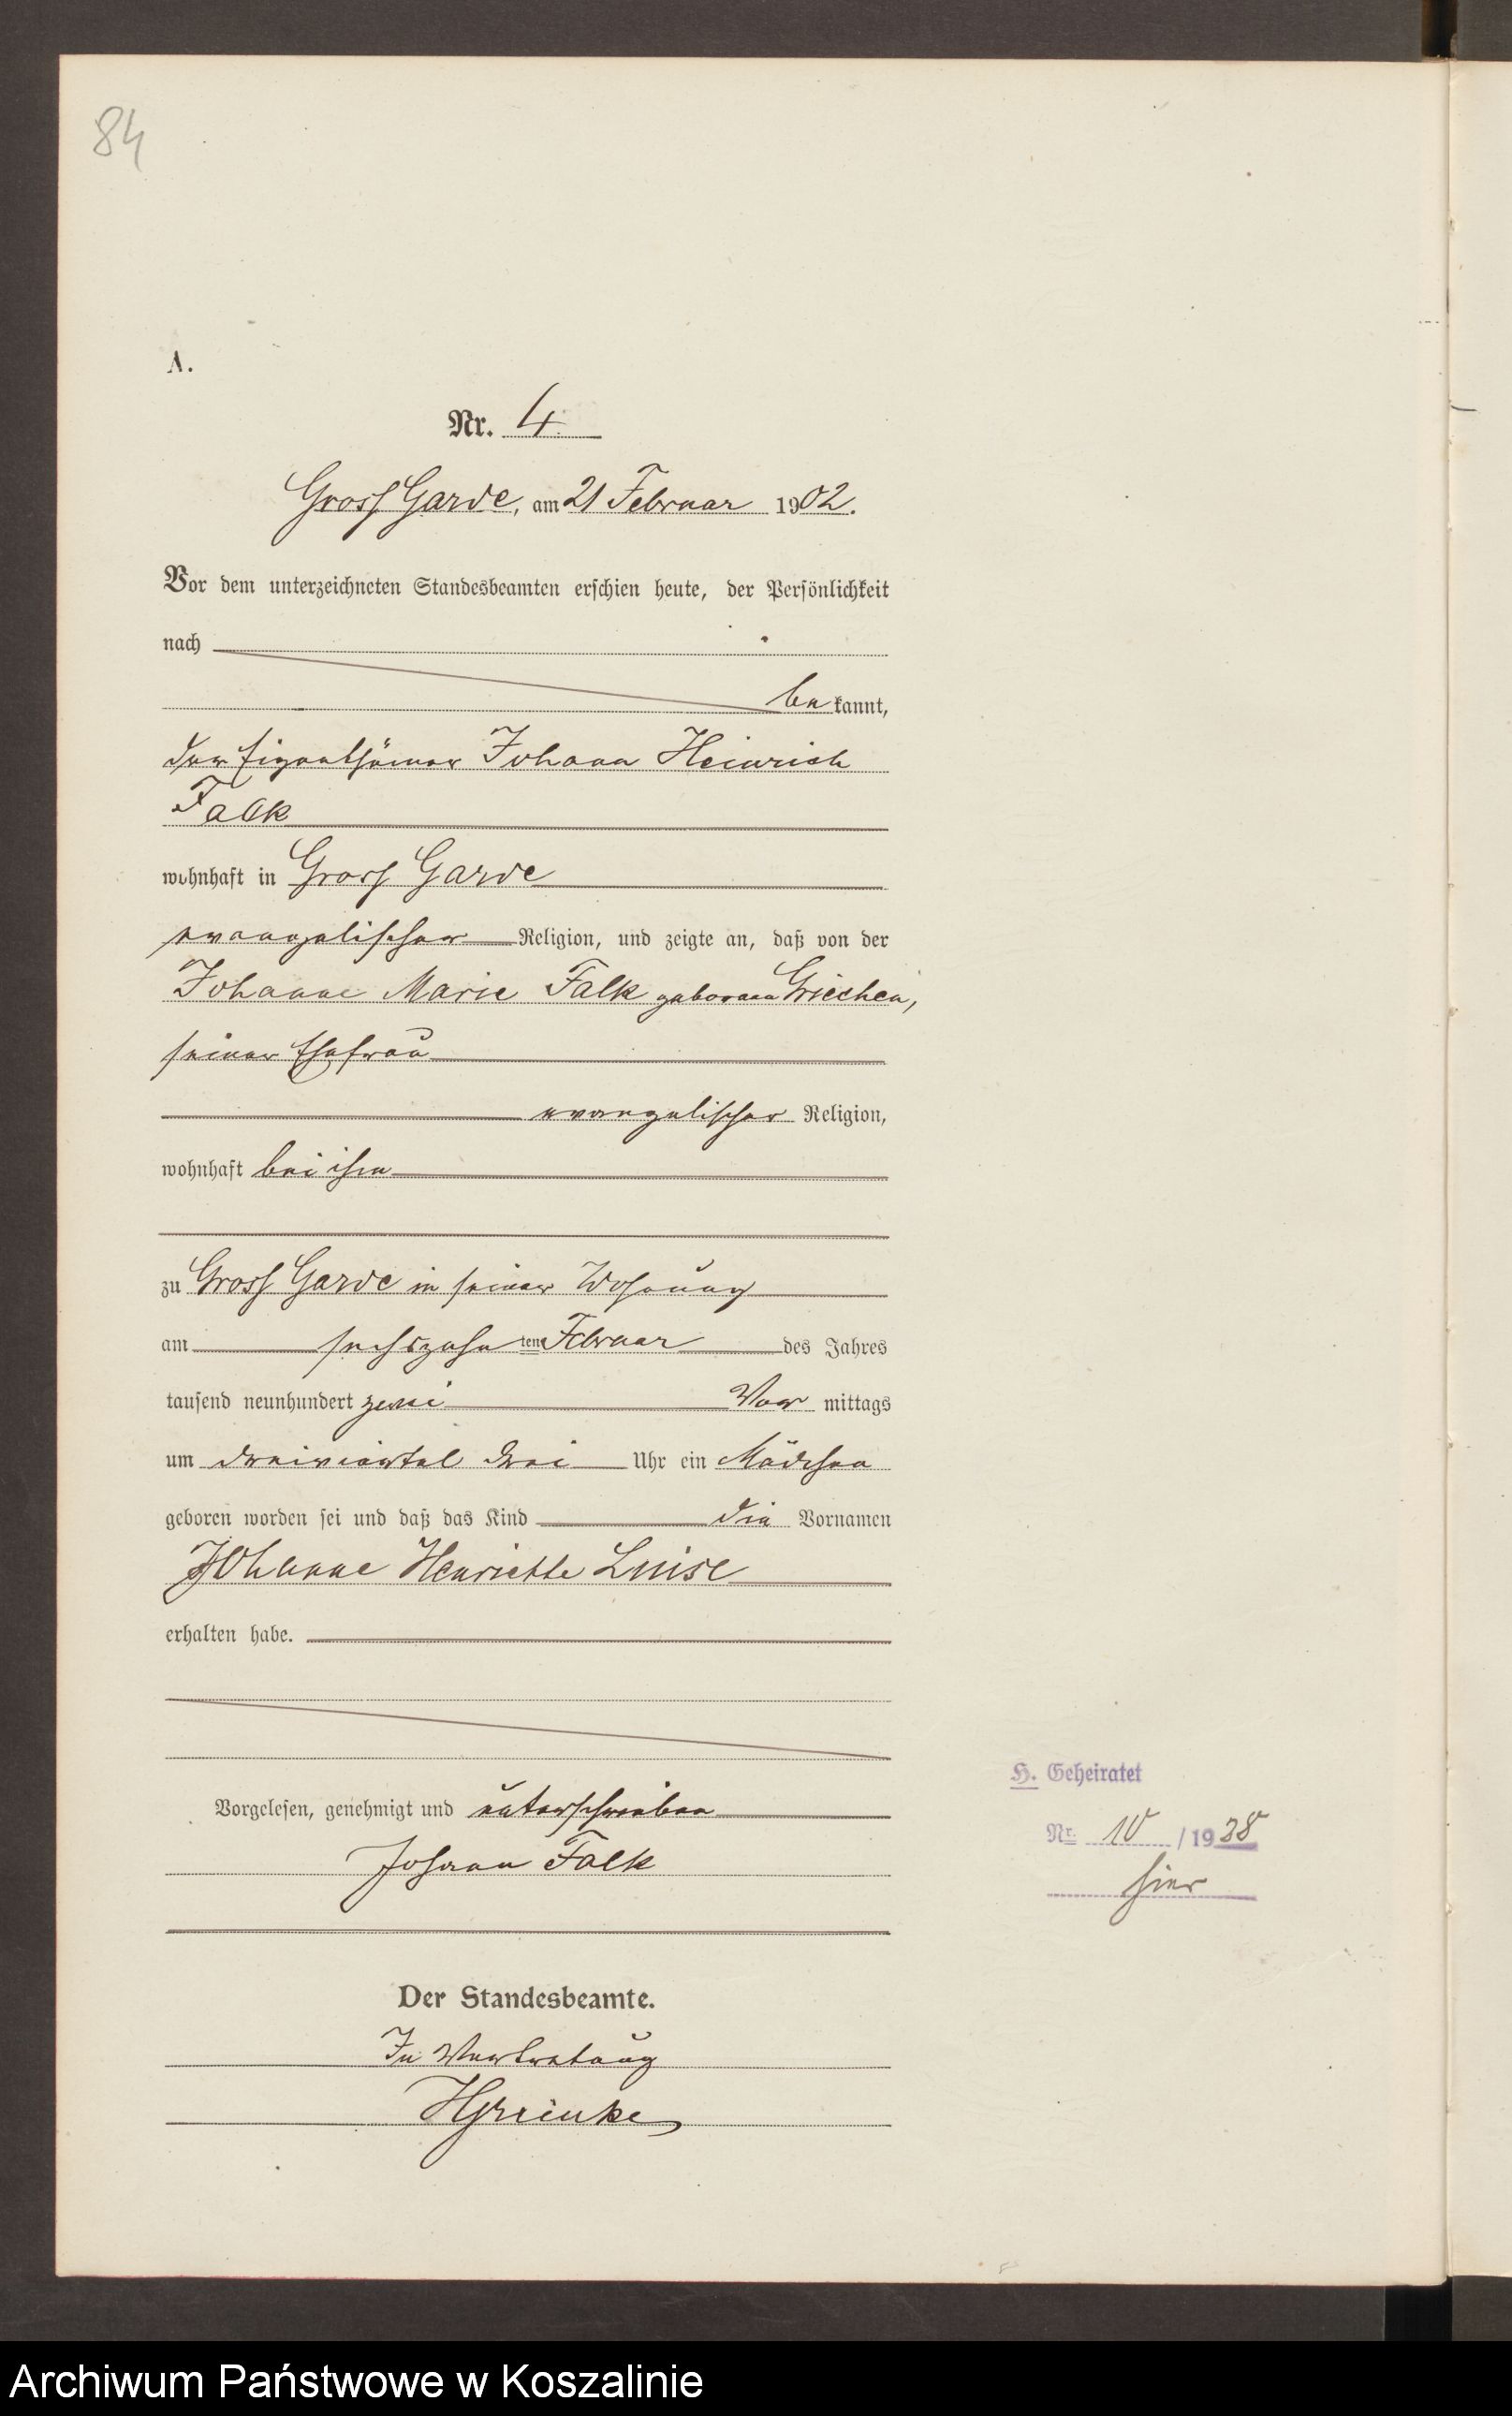 84
A.
Nr. 4.
Gross Garde, am 21 Februar 1902.
Vor dem unterzeichneten Standesbeamten erschien heute, der Persönlichkeit
nach
be kannt,
der Eigenthümer Johann Heinrich
Falk
wohnhaft in Gross Garde
evangelischer Religion, und zeigte an, daß von der
Johanne Marie Falk geborenen Griechen,
seiner Ehefrau
evangelischer Religion,
wohnhaft bei ihm
zu Gross Garde in seiner Wohnung
am sechszehn ten Februar des Jahres
tausend neunhundert zwei Vor mittags
um dreiviertel drei Uhr ein Mädchen
geboren worden sei und daß das Kind die Vornamen
Johanne Henriette Luise
erhalten habe.
Vorgelesen, genehmigt und unterschrieben
Johann Falk
H. Geheiratet
Nr. 10 / 1938
hier
Der Standesbeamte.
In Vertretung
Archiwum Państwowe w Koszalinie